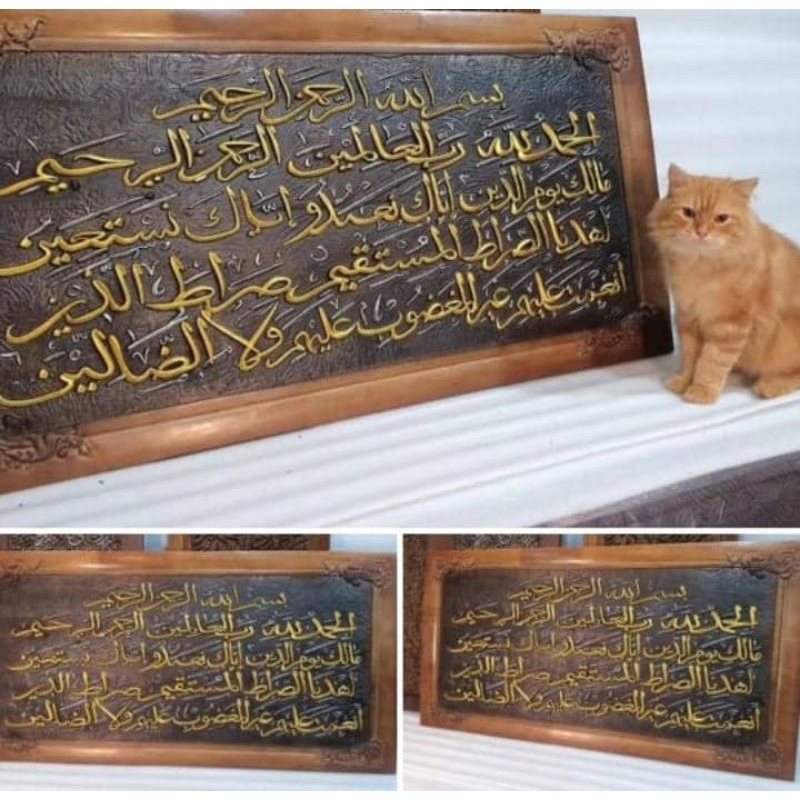 بسم الله الرحمن الرحيم
الحمد لله رب العالمين الرحمن الرحيم
مالك يوم الدين اياك نعبدو اياك نستعين
اهدنا الصراط المستقيم صراط الذين
أنعمت عليهم غير المغضوب عليهم ولا الضالين
بسم الله الرحمن الرحيم
الحمد لله رب العالمين الرحمن الرحيم
مالك يوم الدين اياك نعبدو اياك نستعين
اهدنا الصراط المستقيم صراط الذين
أنعمت عليهم غير المغضوب عليهم ولا الضالين
بسم الله الرحمن الرحيم
الحمد لله رب العالمين الرحمن الرحيم
مالك يوم الدين اياك نعبدو اياك نستعين
اهدنا الصراط المستقيم صراط الذين
أنعمت عليهم غير المغضوب عليهم ولا الضالين